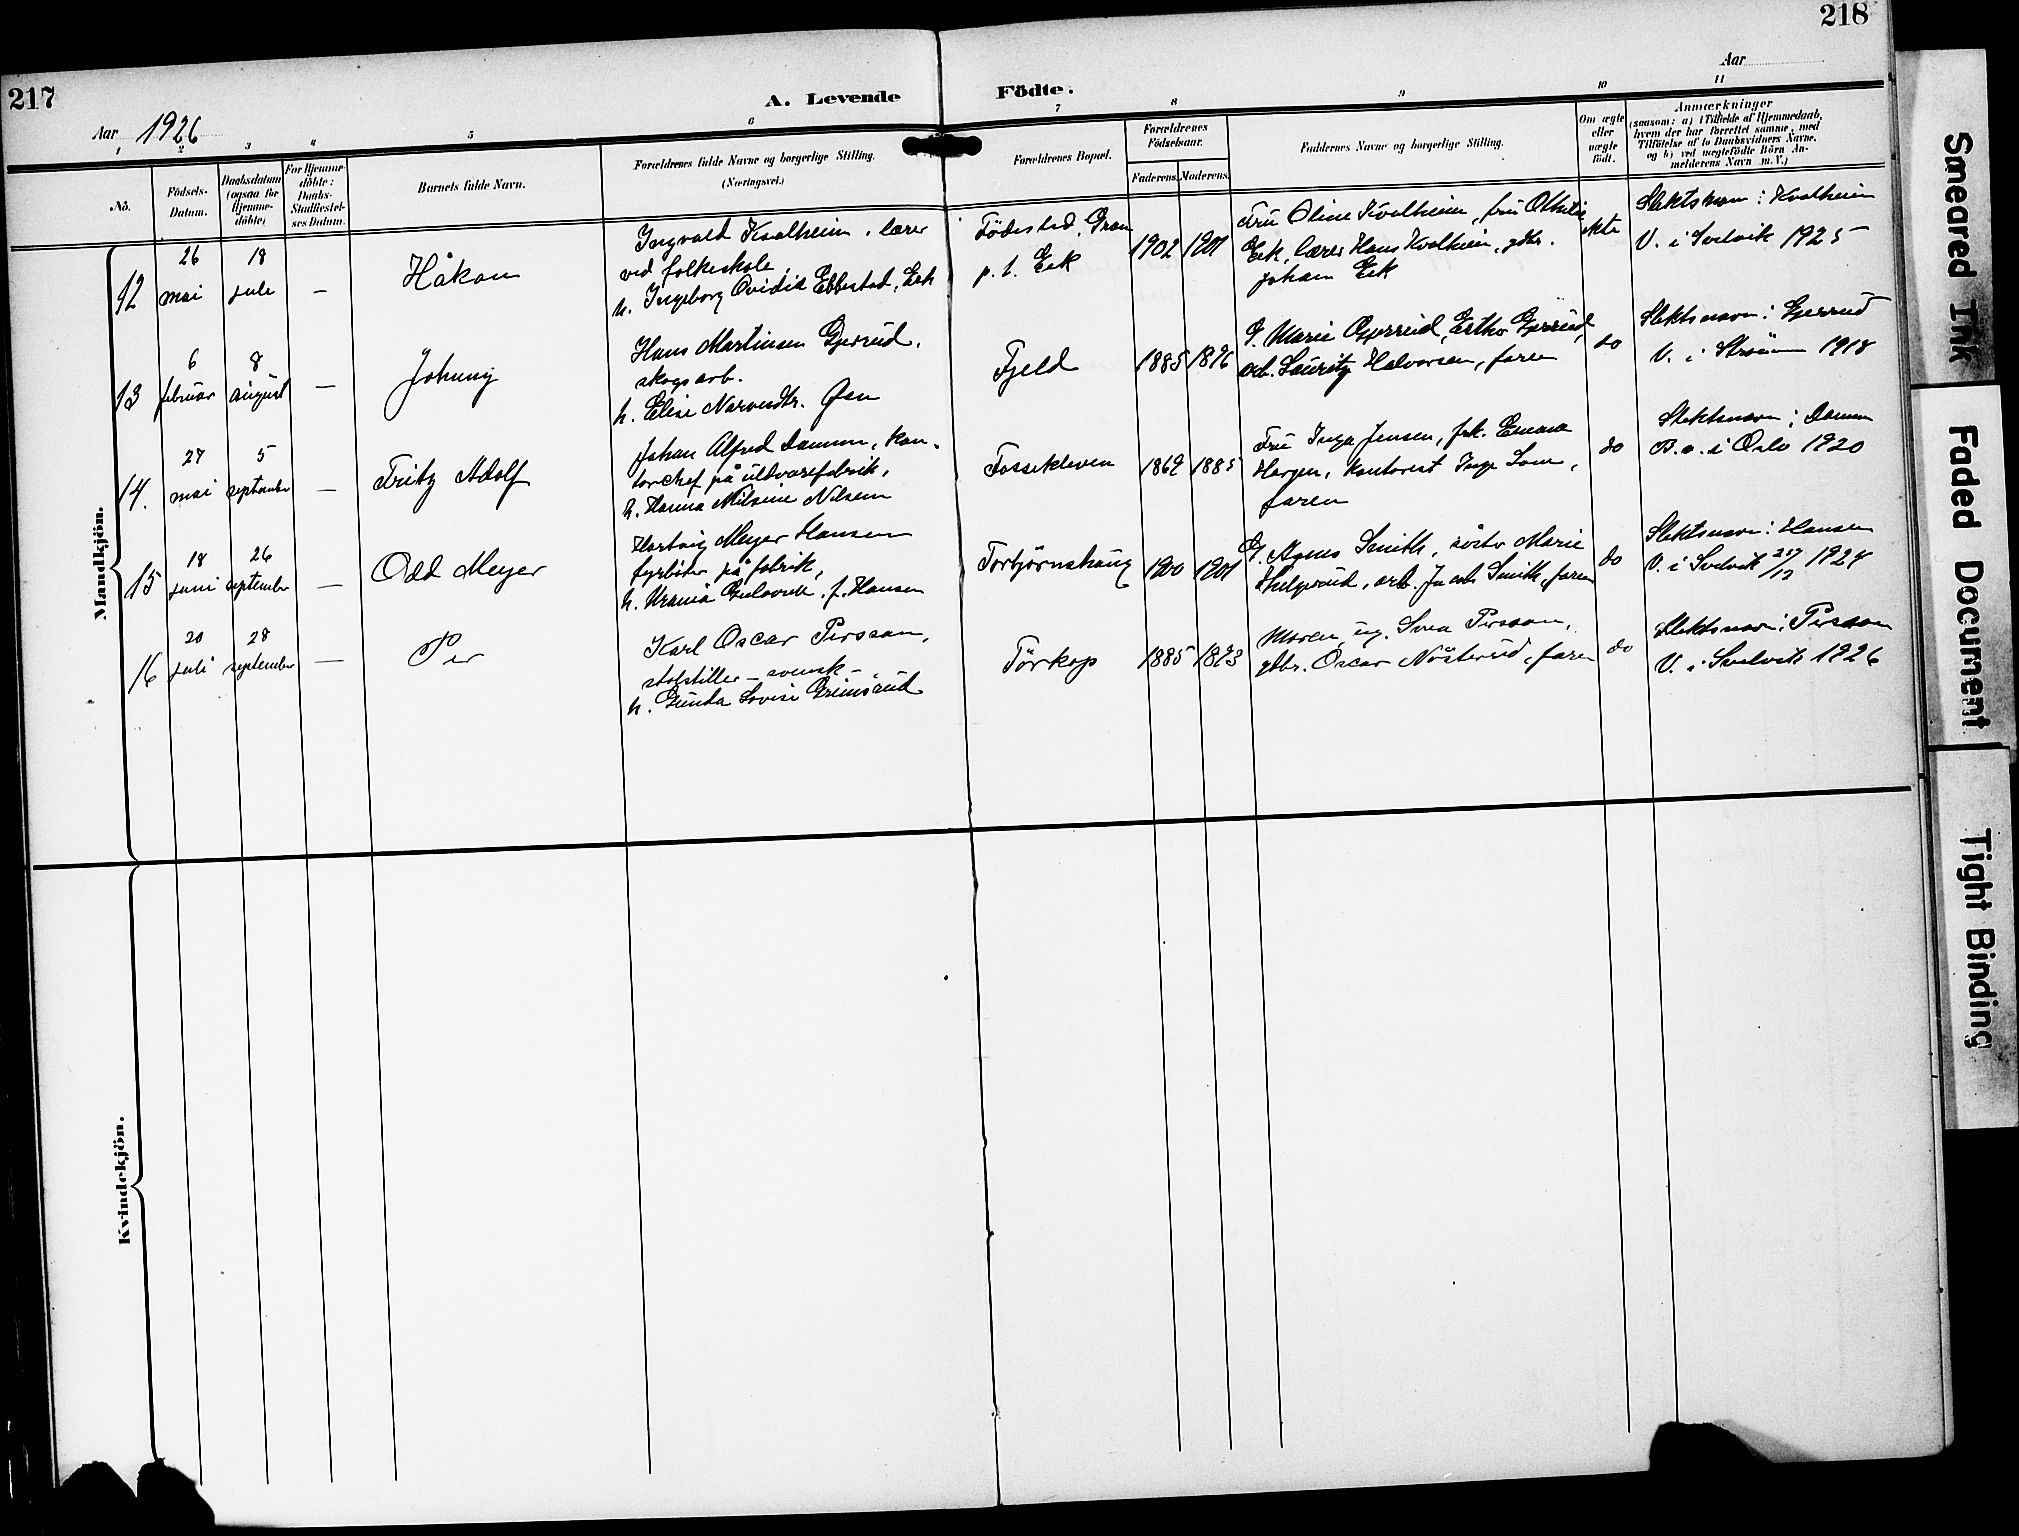 217
218
Aar 1926
A. Levende Födte.
Aar
1
2
3
4
5
6
7
8
9
10
11
No.
Födsels-
Datum.
Daabsdatum
(ogsaa for
Hjemme-
döbte)
For Hjemme-
döbte:
Daabs-
Stadfæstel-
ses Datum.
Barnets fulde Navn.
Forældrenes fulde Navne og borgerlige Stilling.
(Næringsvei.)
Forældrenes Bopæl.
Forældrenes
Födselsaar.
Faderens.
Moderens.
Faddernes Navne og borgerlige Stilling.
Om ægte
eller
uægte
födt.
Anmærkninger
(saasom: a) i Tilfælde af Hjemmedaab,
hvem der har forrettet samme, med
Tilföielse af to Daabsvidners Navne,
og b) ved uægtefödte Börn An-
melderens Navn m. V.)
Mandkjön.
12
26
mai
18
juli
—
Håkon
Ingvald Kvalheim, lærer
ved folkeskole,
h. Ingeborg Ovidia Ebbestad, Eek
Födested, Gran
p. t. Eek
1902
1901
Fru Oline Kvalheim, fru Othilie
Eek, lærer Hans Kvalheim, gdbr.
Johan Eek
ekte
Slektsnavn: Kvalheim
V. i Svelvik 1925
13
6
februar
8
august
—
Johnny
Hans Martinsen Gjerrud,
skogsarb.
h. Elise Narvesdtr. Öen
Fjeld
1885
1896
G. Marie Gjerrud, Esther Gjerrud,
arb. Lauritz Halvorsen, faren
do
Slektsnavn: Gjerrud
V. i Strömm 1918
14.
27
mai
5
september
—
Fritz Adolf
Johan Alfred Damm, kon-
torchef på uldvarefabrik,
h. Hanna Nilsine Nilsen
Fossekleven
1869
1885
Fru Inga Jensen, frk. Emma
Horgen, kontorist Inge Lom,
faren
do
Slektsnavn: Damm
B.v. i Oslo 1920
15
18
juni
26
september
—
Odd Meyer
Hartvig Meyer Hansen
fyrböter på fabrik,
h. Urania Gulovsen, f. Hansen
Torbjörnskaug
1900
1901
G. Agnes Smith, söster Marie
Helgerud, arb. Jacob Smith, faren
do
Slektsnavn: Hansen
V. i Svelvik 27/12 1924
16
20
juli
28
september
—
Per
Karl Oscar Persson,
stolstiller – svensk –
h. Gunda Lovise Grimsrud
Törkop
1885
1893
Moren, ug. Svea Persson,
gdbr. Oscar Nösterud, faren
do
Slektsnavn: Persson
V. i Svelvik 1926
Kvindekjön.
Smeared Ink
Faded Document
Tight Binding